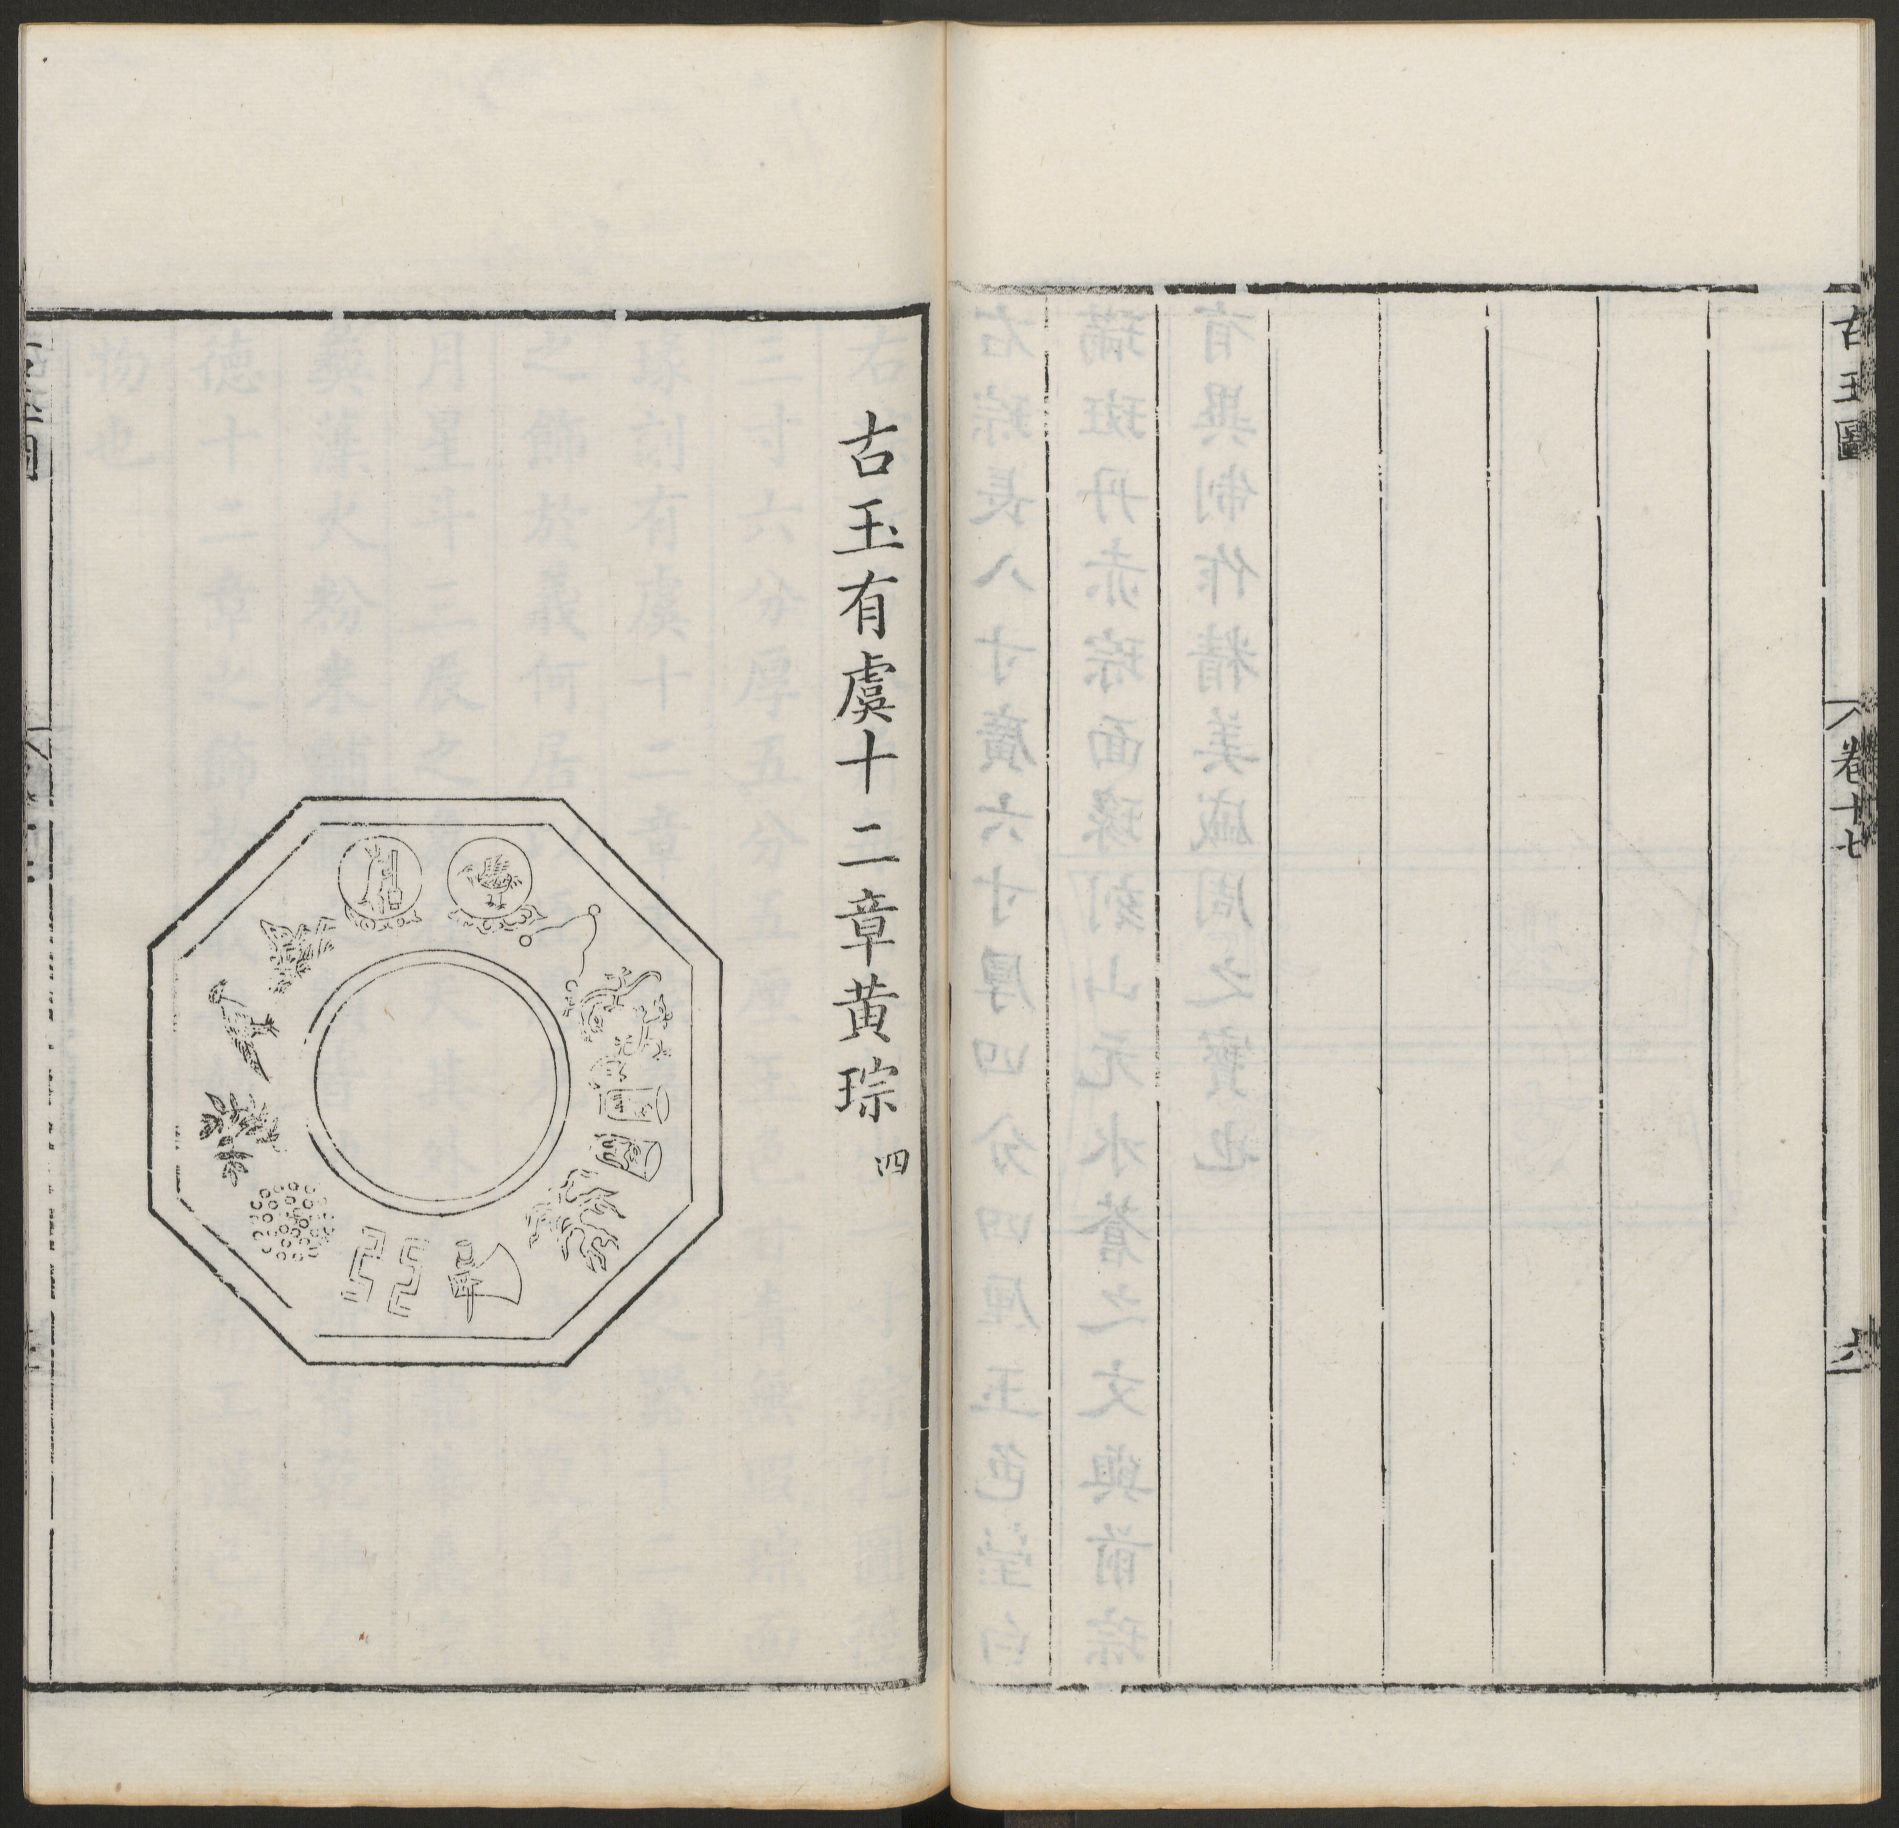 古玉圖
卷十七
六
古玉有虞十二章黄琮 四